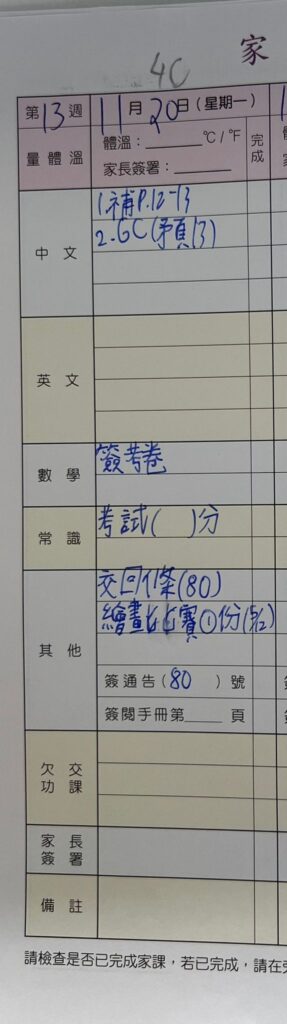 4C
家
第13週 11月20日(星期一)
量體溫 體溫：______°C/°F 完成
家長簽署：______
中文 1.補P.12-13
2.GC(預13)
英文
數學 簽考卷
常識 考試( )分
其他 交回條(80)
繪畫比賽①份(5/2)
簽通告(80)號
簽閱手冊第____頁
欠交功課
家長簽署
備註
請檢查是否已完成家課，若已完成，請在